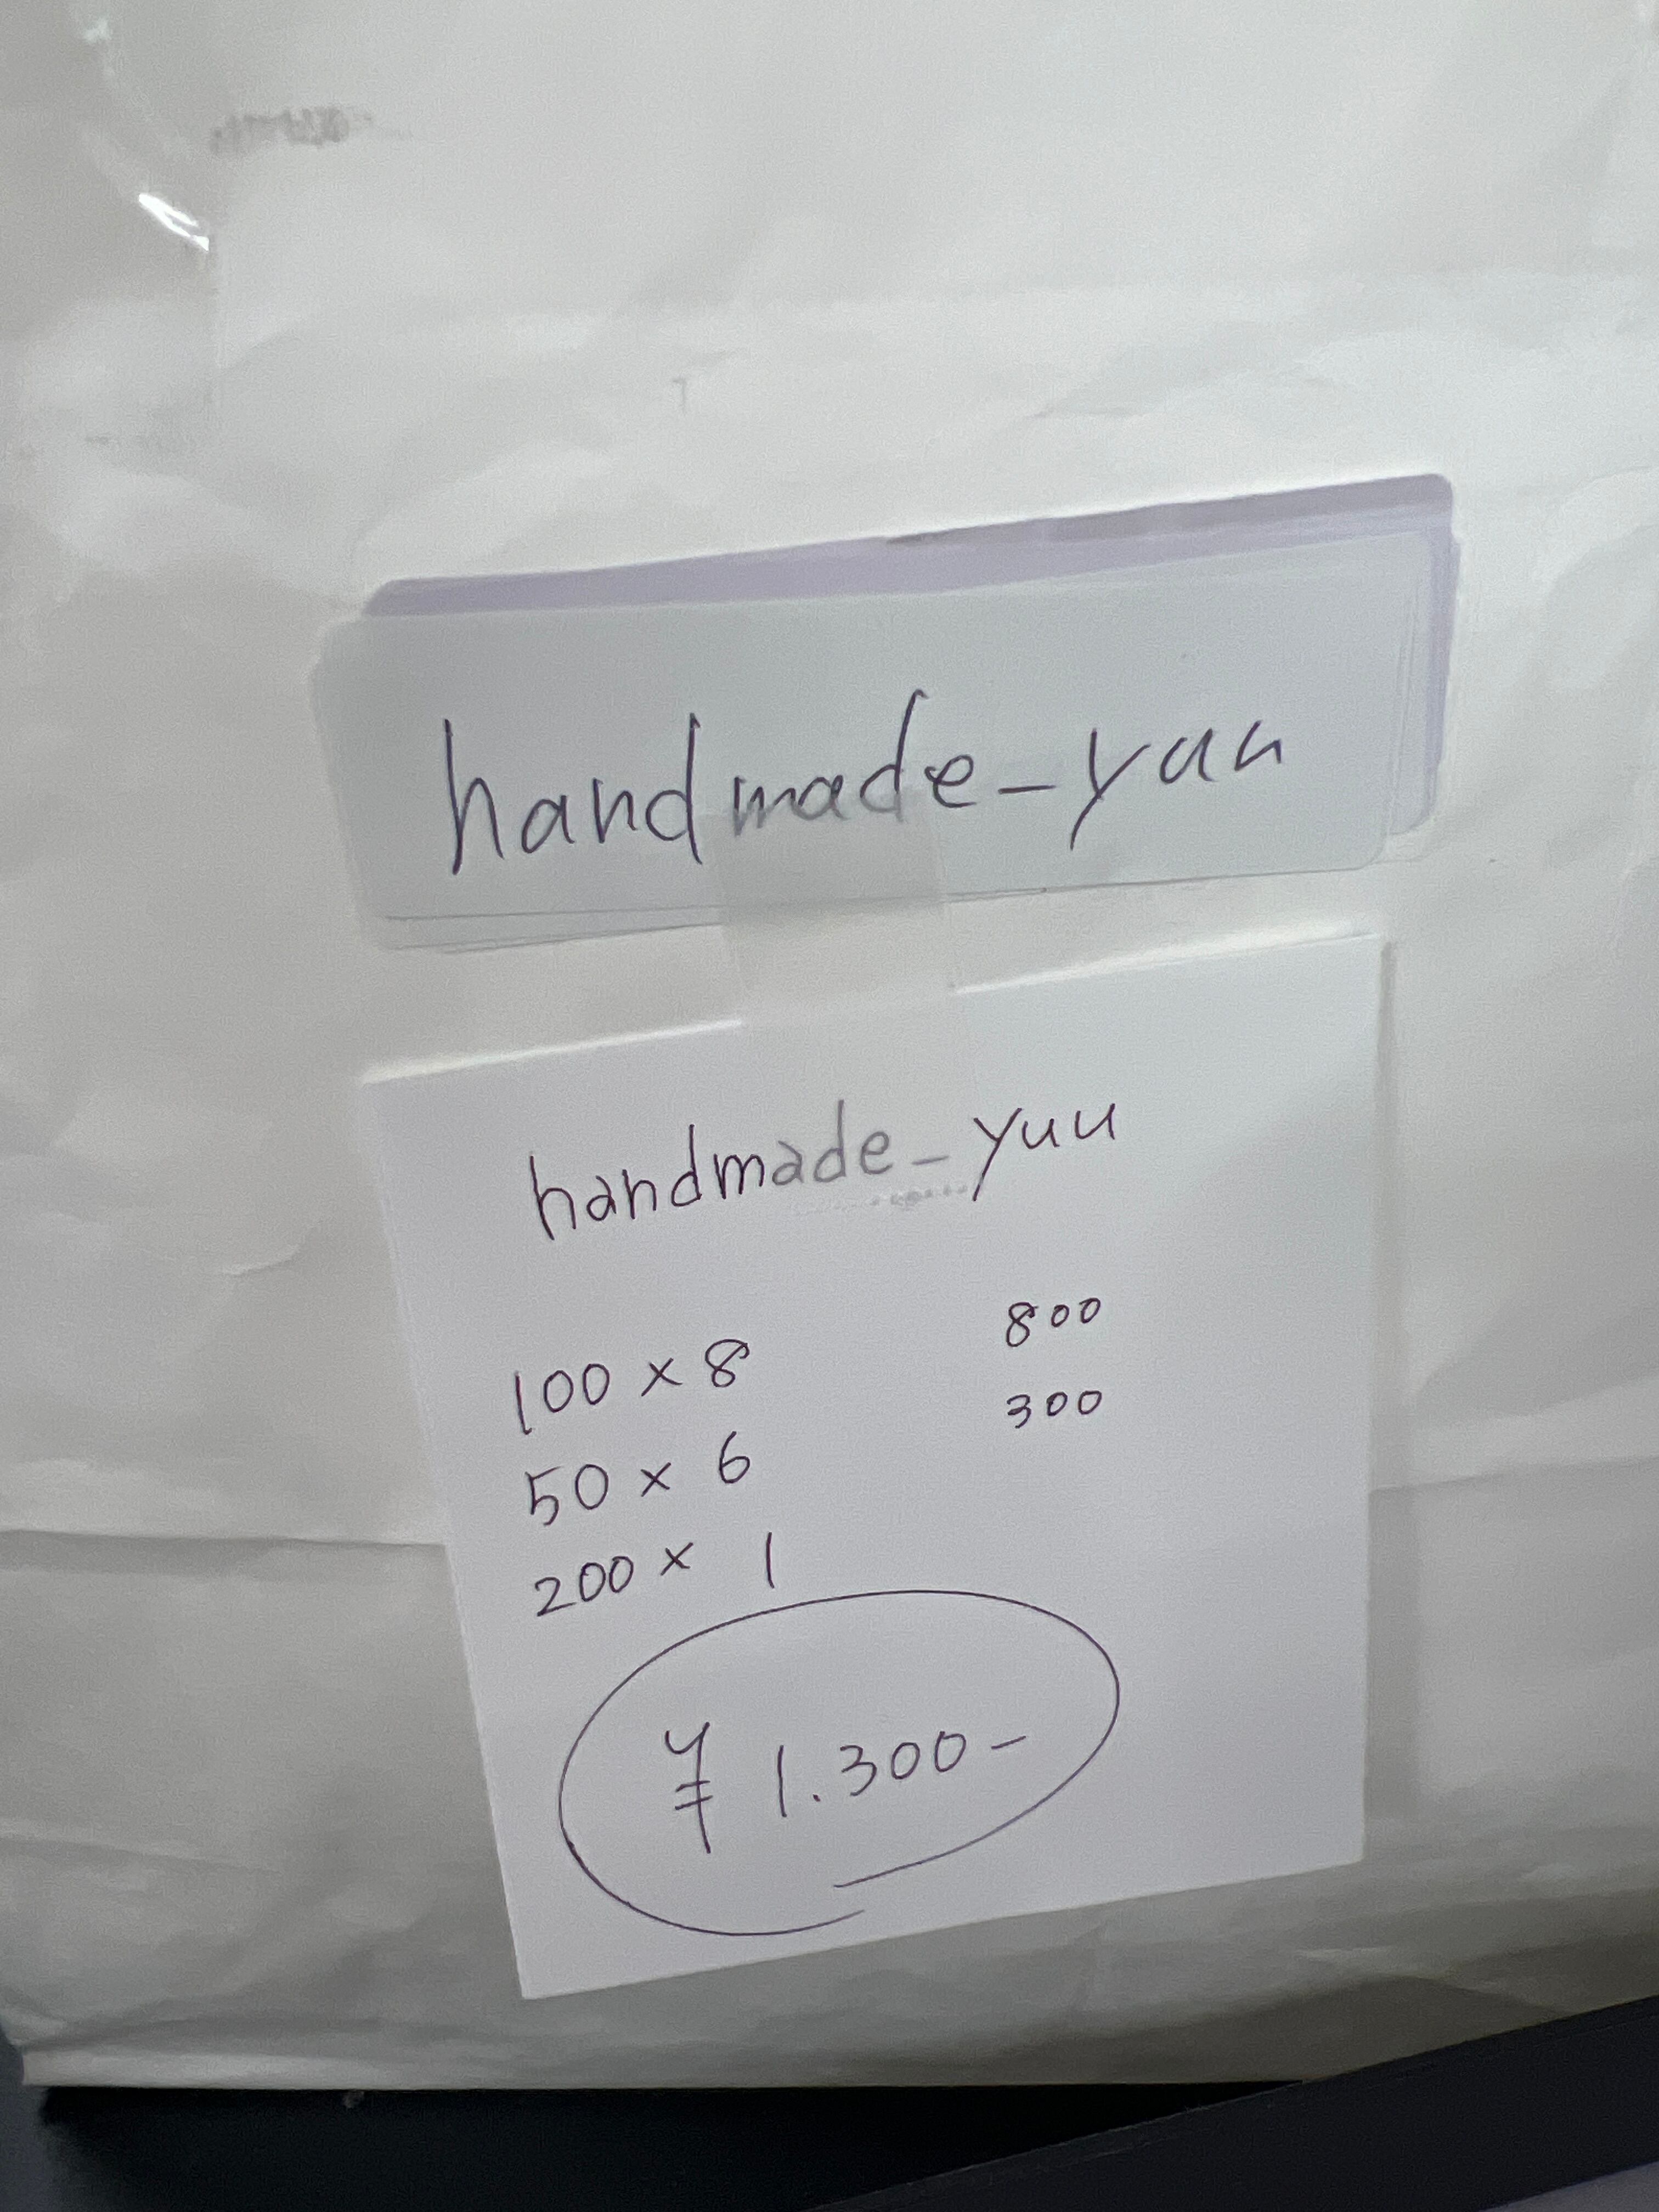 handmade_yuu
handmade_yuu
100 × 8 800
50 × 6 300
200 × 1
¥ 1.300-